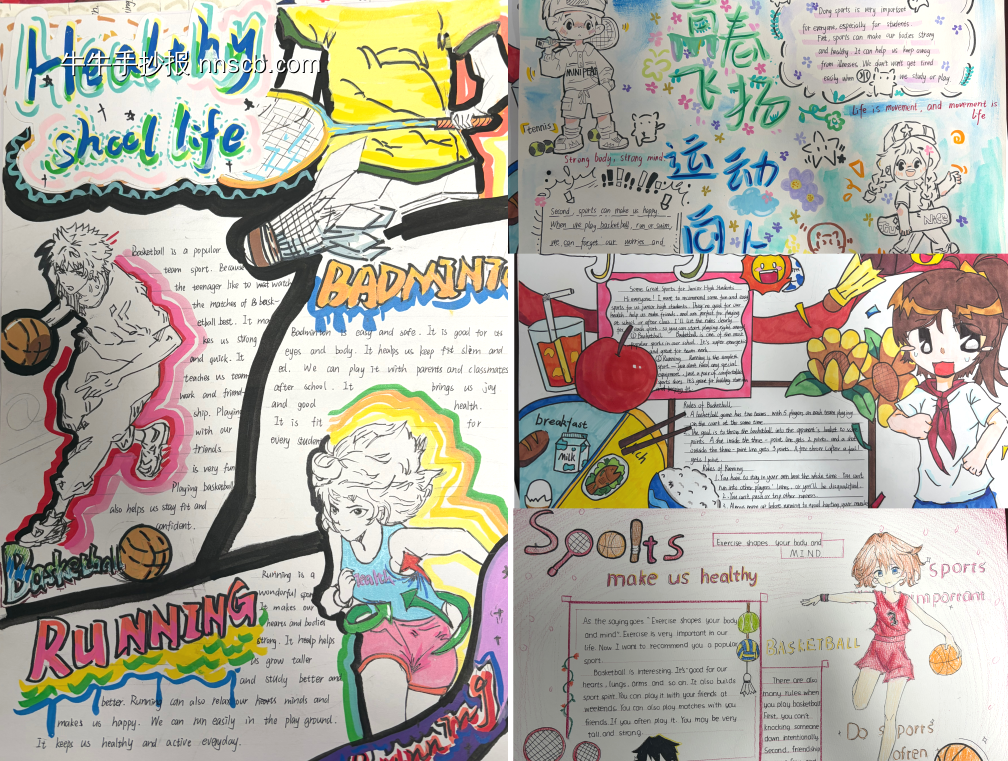 Healthy
牛牛手抄报 nnscb.com
shool life
Basketball is a popular
team sport. Because
the teenager like to watch
the matches of Bbask-
etball best. It ma
kes us strong
and quick. It
teaches us team
work and friend-
ship. Playing
with our
friends
is very fun
Playing basketball
also helps us stay fit and
confident.
Basketball
BADMINT
Badminton is easy and safe. It is good for us
eyes and body. It healps us keep fit slim and
ed. We can play it with parents and classmates
after school. It brings us joy
and good health.
It is fit for
every student
RUNNING
Running is a
wonderful spor
It makes our
hearts and bodies
strong. It healp helps
us grow taller
and study better and
better. Running can also relax our minds and
makes us happy. We can run easily in the play ground.
It keeps us healthy and active everyday.
Running
青春
飞扬
MINI PEACH
Tennis
Strong body, strong mind
运动
向
Doing sports is very important
for everyone, especially for students.
First, sports can make our bodies strong
and healthy. It can help us keep away
from illnesses. We don't won't get tired
easily when we study or play
Life is movement, and movement is
life
Second, sports can make us happy.
When we play basketball, run or swim,
we can forget our worries and
Some Great Sports for Junior High Students
Hi everyone! I want to recommend some fun and easy
sports for us junior high students. They're good for our
health, help us make friends, and are perfect for playing
at school or after class.
Basketball is one of the most
popular sports in our school. It's super energetic
and great for team work.
② Running Running is the simplest
breakfast
Milk
Rules of Basketball
A basketball game has two teams, with 5 players on each team playing
on the court at the same time
The goal is to throw the basketball into the opponent's basket to score
points. A shot inside the three-point line gets 2 points, and a shot
outside the three-point line gets 3 points. A free throw (after a foul)
gets 1 point.
Rules of Running
1. You have to stay in your own lane the whole time. You can't
run into other players' lanes, or you'll be disqualified.
2. You can't push or trip other runners.
Sports
make us healthy
Exercise shapes your body and
MIND
sports
important
As the saying goes, "Exercise shapes your body
and mind". Exercise is very important in our
life. Now I want to recommend you a popular
sport.
Basketball is interesting. It's good for our
hearts, lungs, arms and so on. It also builds
sport spirit. You can play it with your friends at
weekends. You can also play matches with you
friends. If you often play it. You may be very
tall and strong.
BASKETBALL
There are also
many rules when
you play basketball
First, you can't
knocking someone
down intentionally.
Second, friendship
Do sports
often